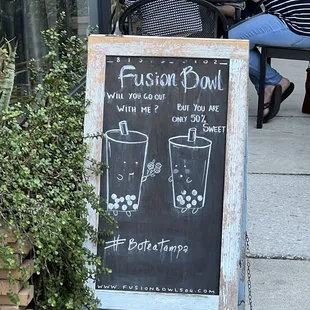 Fusion Bowl
Will you go out
with me?
But you are
only 50%
sweet
#BoteaTampa
www.fusionbowlsou.com